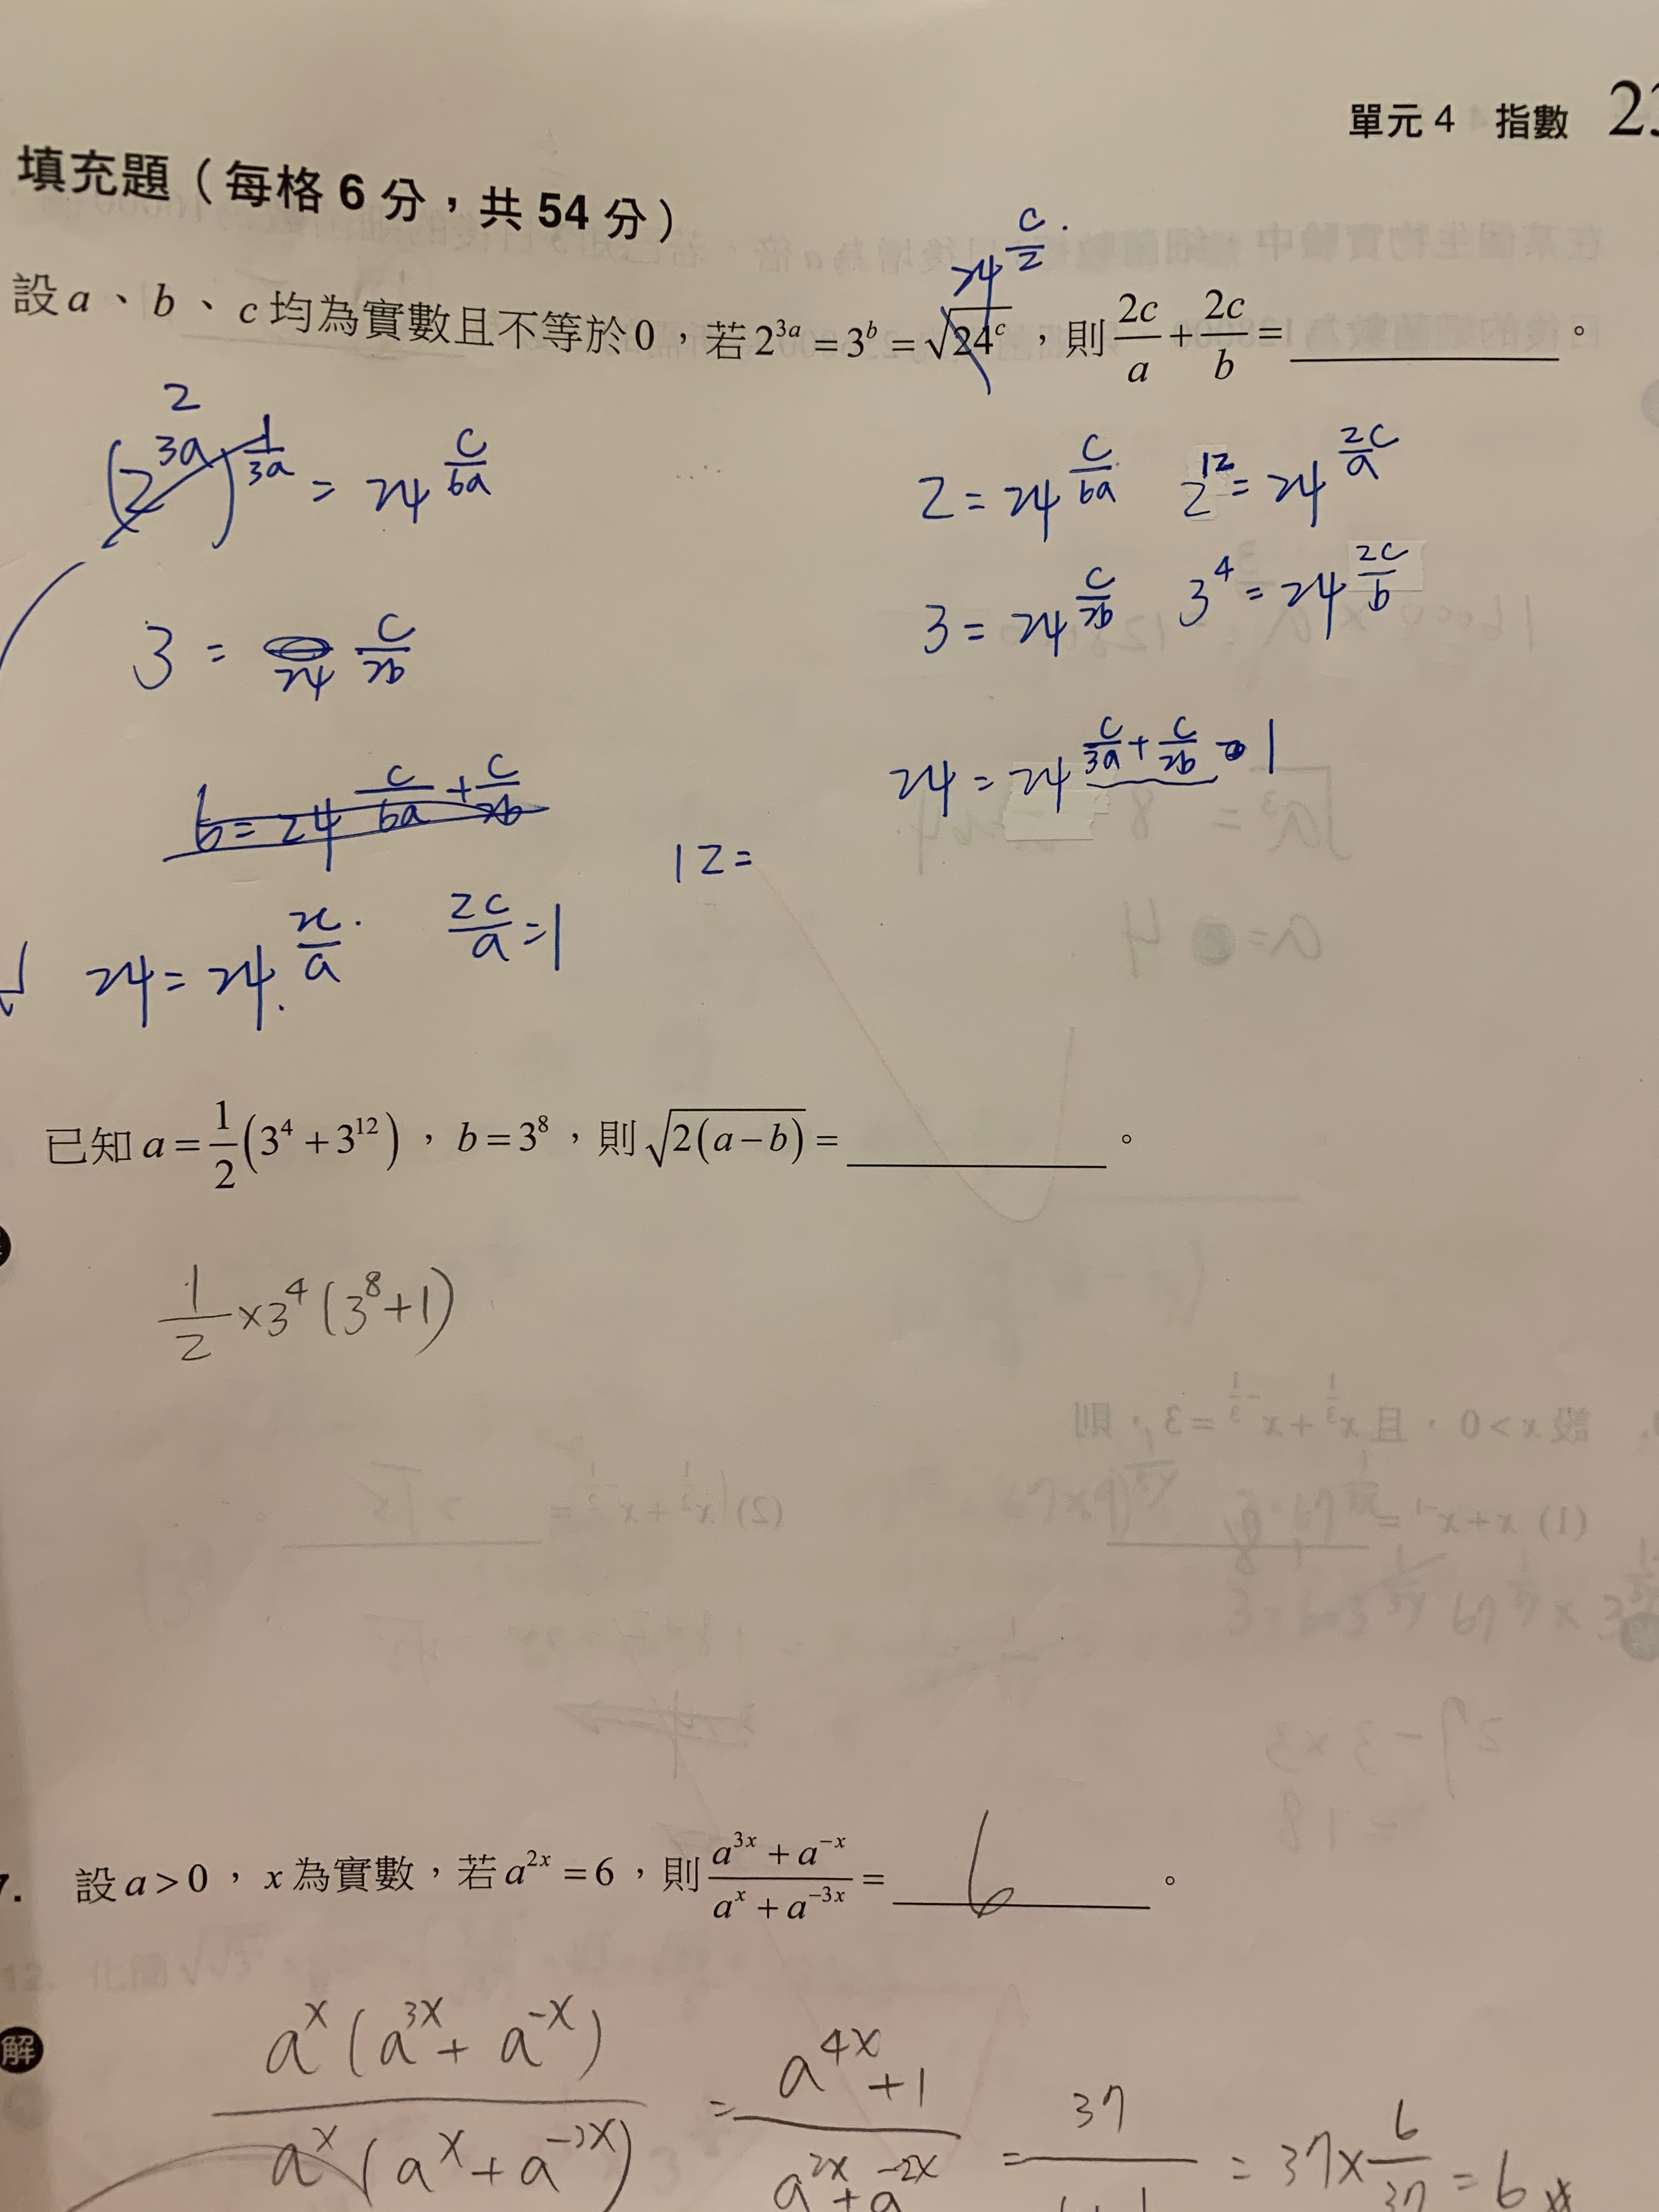 單元 4 指數
填充題(每格 6 分,共 54 分)
24^{c/2}.
設 a、b、c 均為實數且不等於 0,若 2^{3a} = 3^b = √(24^c),則 2c/a + 2c/b = ________。
(2^{3a})^{1/3a} = 24^{c/6a}
2 = 24^{c/6a} 2^{12} = 24^{2c/a}
3 = 24^{c/2b}
3 = 24^{c/2b} 3^4 = 24^{2c/b}
6 = 24^{c/6a + c/2b}
24 = 24^{c/3a + c/2b} 1
12 =
24 = 24^{2c/a}. 2c/a = 1
已知 a = 1/2 (3^4 + 3^{12}),b = 3^8,則 √(2(a−b)) = ________。
1/2 × 3^4 (3^8 + 1)
7. 設 a > 0,x 為實數,若 a^{2x} = 6,則 (a^{3x} + a^{−x})/(a^x + a^{−3x}) = 6。
解
a^x (a^{3x} + a^{−x}) / a^x (a^x + a^{−3x}) = (a^{4x} + 1)/(a^{2x} + a^{−2x}) = 37/ = 37 × 6/37 = 6